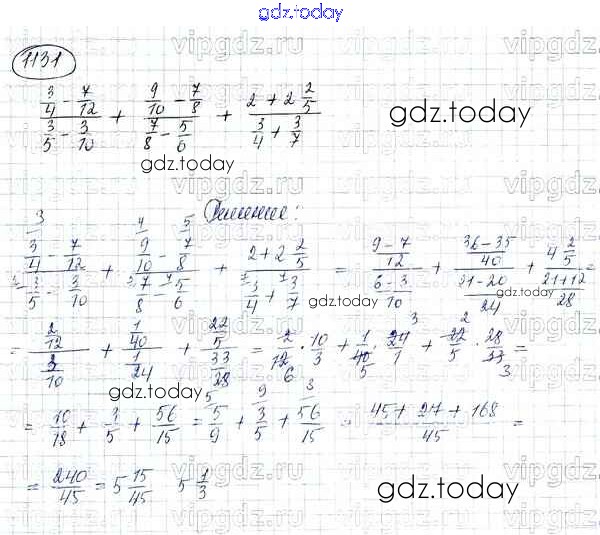 gdz.today
1131
vipgdz.ru
(3/4 − 7/12)/(3/5 − 3/10) + (9/10 − 7/8)/(7/8 − 5/6) + (2 + 2 2/5)/(3/4 + 3/7)
gdz.today
Решение:
(3/4 − 7/12)/(3/5 − 3/10) + (9/10 − 7/8)/(7/8 − 5/6) + (2 + 2 2/5)/(3/4 + 3/7) = ((9−7)/12)/((6−3)/10) + ((36−35)/40)/((21−20)/24) + (4 2/5)/((21+12)/28) =
gdz.today
= (2/12)/(3/10) + (1/40)/(1/24) + (22/5)/(33/28) = 2/12 · 10/3 + 1/40 · 24/1 + 22/5 · 28/33 =
gdz.today
= 10/18 + 3/5 + 56/15 = 5/9 + 3/5 + 56/15 = (45 + 27 + 168)/45 =
= 240/45 = 5 15/45 5 1/3
gdz.today